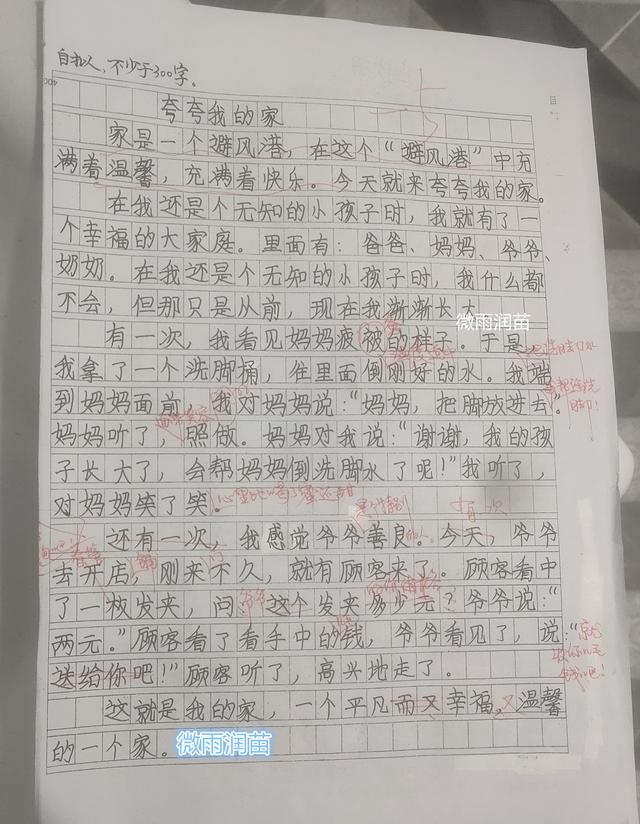 自拟人,不少于300字。
夸夸我的家
家是一个避风港,在这个“避风港”中充
满着温馨,充满着快乐。今天就来夸夸我的家。
在我还是个无知的小孩子时,我就有了一
个幸福的大家庭。里面有:爸爸、妈妈、爷爷、
奶奶。在我还是个无知的小孩子时,我什么都
不会,但那只是从前,现在我渐渐长大
微雨润苗
有一次,我看见妈妈疲被的样子。于是
我拿了一个洗脚桶,住里面倒刚好的水。我端
到妈妈面前 我对妈妈说:“妈妈,把脚放进去。”
妈妈听了,照做。妈妈对我说:“谢谢,我的孩
子长大了,会帮妈妈倒洗脚水了呢!”我听了,
对妈妈笑了笑。
有一次
还有一次,我感觉爷爷善良。今天,爷爷
去开店,刚来不久,就有顾客来了。顾客看中
了一枚发夹,问 爷爷 这个发夹多少元?爷爷说:“
两元。”顾客看了看手中的钱,爷爷看见了,说:“
送给你吧!”顾客听了,高兴地走了。
这就是我的家,一个平凡而又幸福。又温馨
的一个家。
微雨润苗